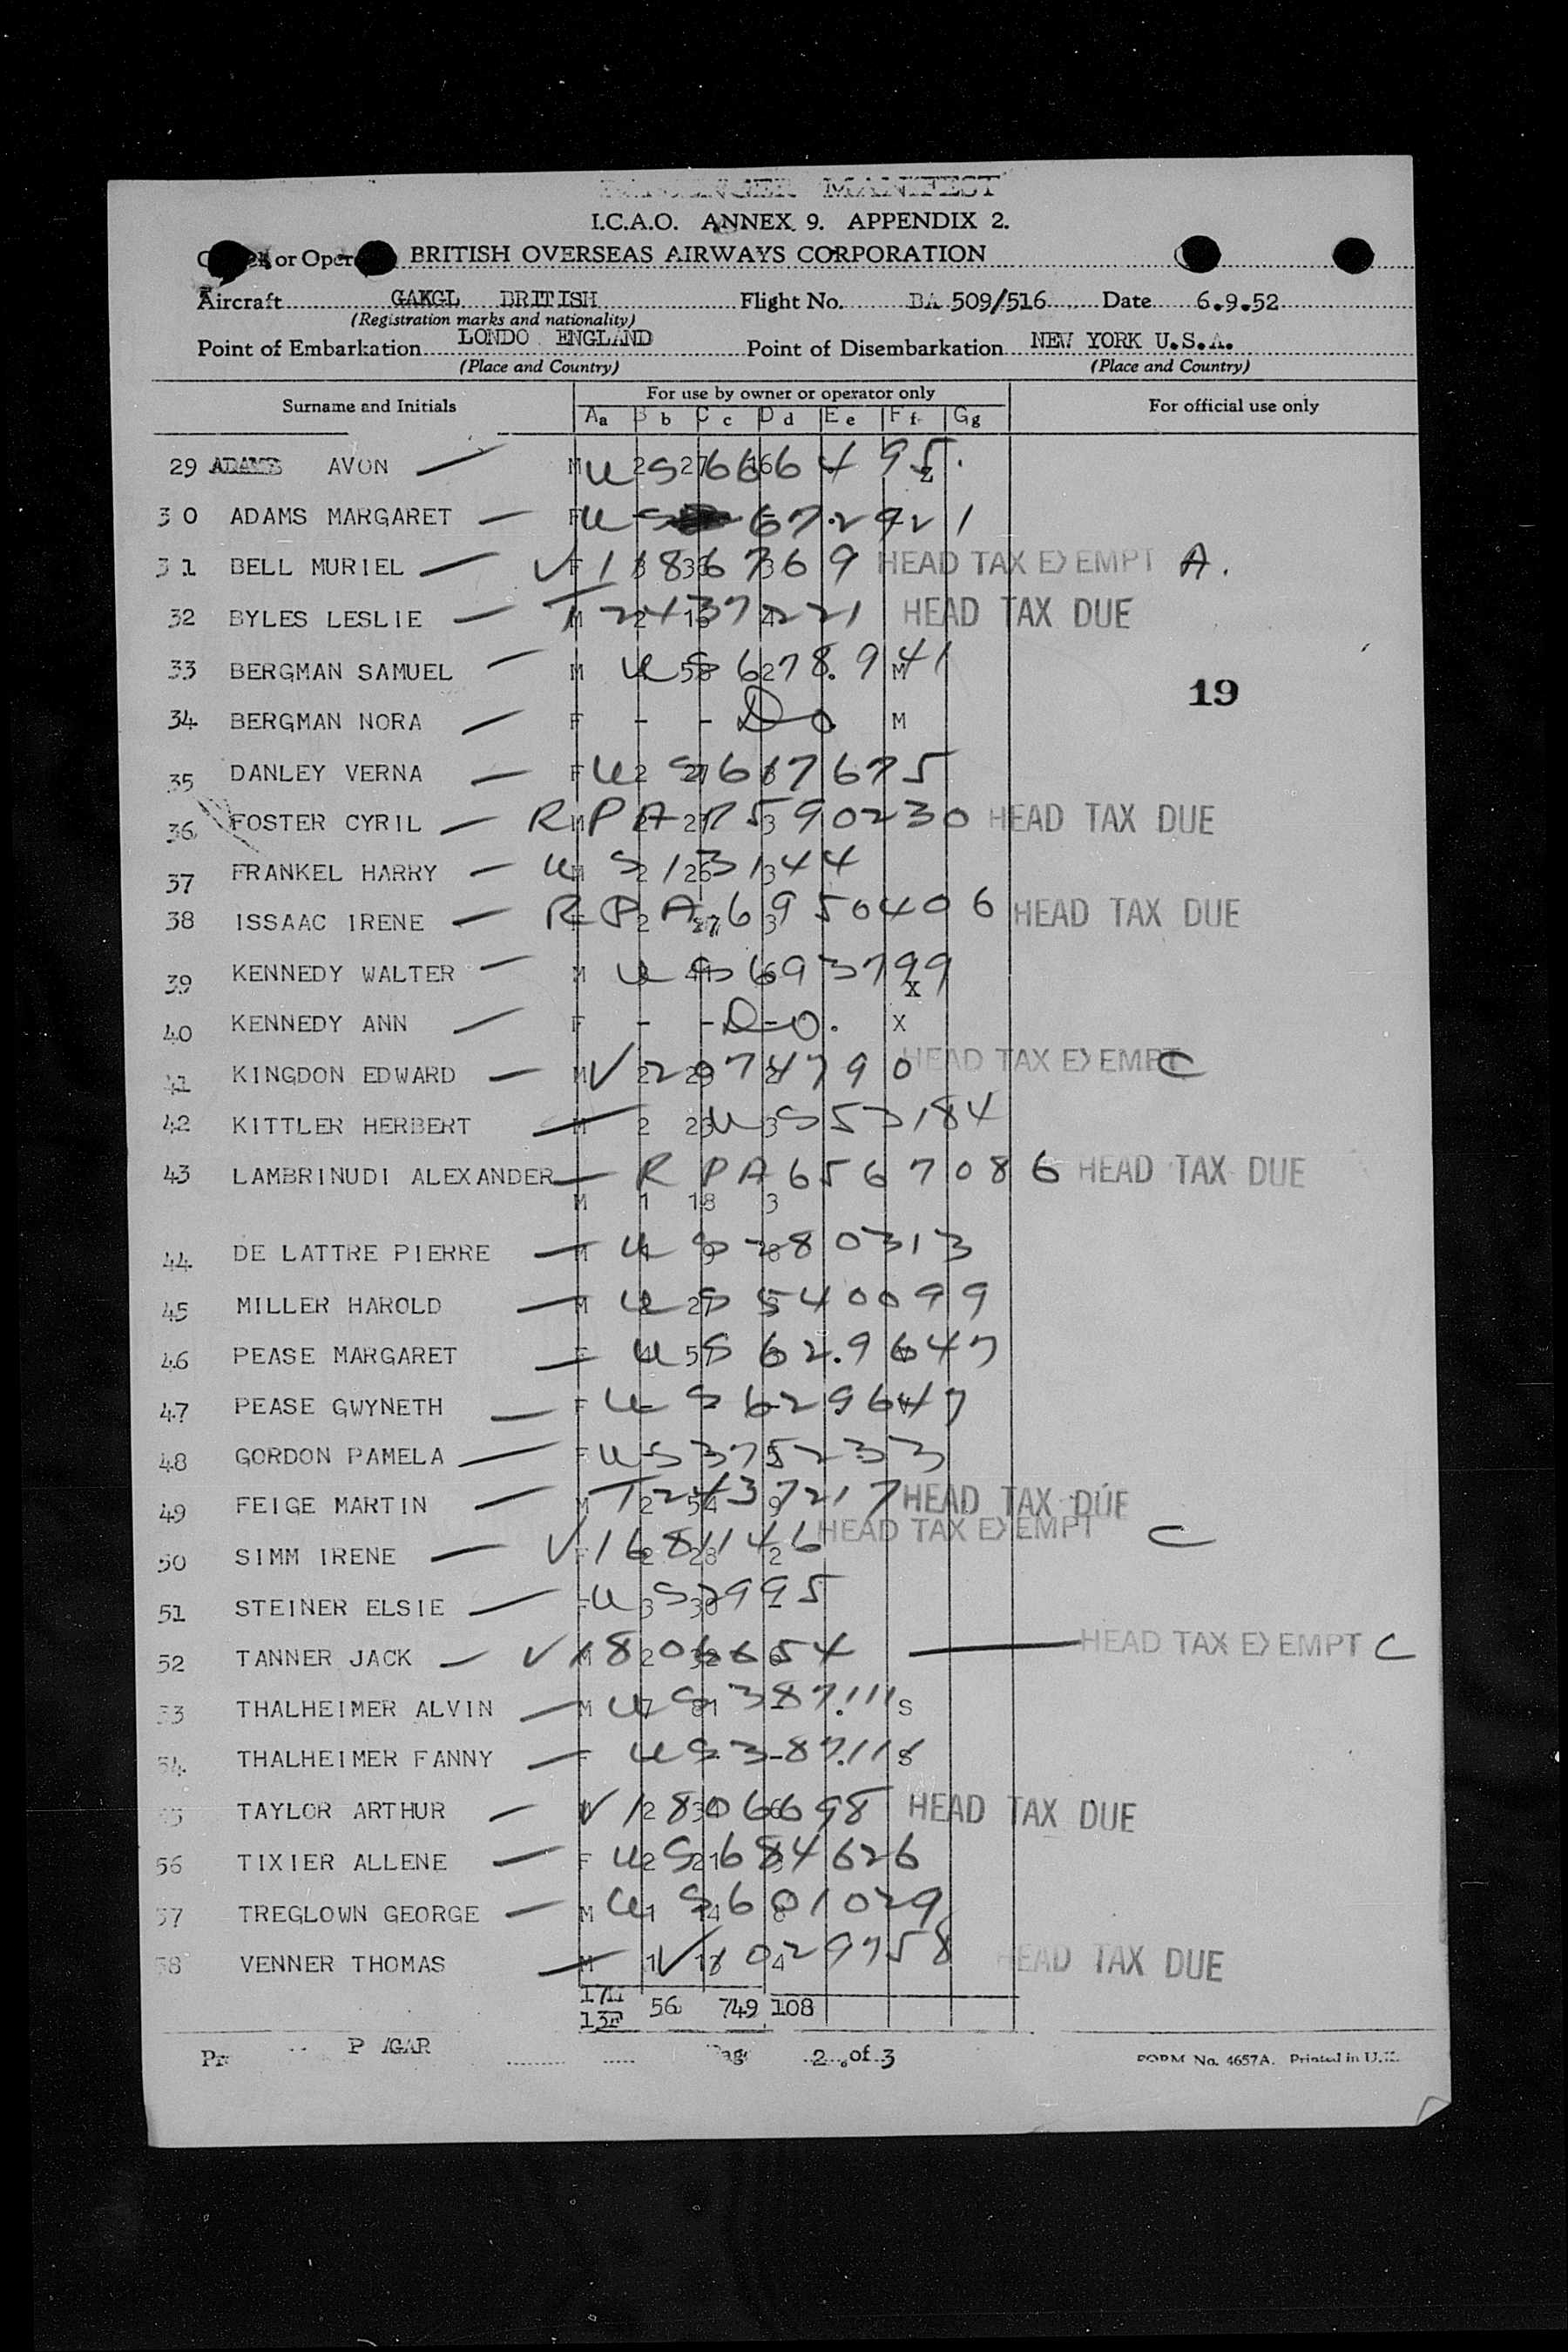 PASSENGER MANIFEST
I.C.A.O. ANNEX 9. APPENDIX 2.
or BRITISH OVERSEAS AIRWAYS CORPORATION
Aircraft GAKGL BRITISH Flight No. BA 509/516 Date 6.9.52
(Registration marks and nationality)
Point of Embarkation LONDO ENGLAND Point of Disembarkation NEW YORK U.S.A.
(Place and Country) (Place and Country)
Surname and Initials For use by owner or operator only For official use only
Aa B b C c D d E e F f G g
29 ADAMS AVON — M US 6664495. Z
30 ADAMS MARGARET — F US 672921
31 BELL MURIEL — V1836769 HEAD TAX EXEMPT A.
32 BYLES LESLIE — T2437221 HEAD TAX DUE
33 BERGMAN SAMUEL — M US 678.941 M
19
34 BERGMAN NORA — F - - Do. M
35 DANLEY VERNA — F US 617675
36 FOSTER CYRIL — RPA R590230 HEAD TAX DUE
37 FRANKEL HARRY — US 131344
38 ISSAAC IRENE — RPA 6950406 HEAD TAX DUE
39 KENNEDY WALTER — M US 693799 X
40 KENNEDY ANN — F - - Do. X
41 KINGDON EDWARD — M V2074790 HEAD TAX EXEMPT C
42 KITTLER HERBERT — M 2 23 3 US 53184
43 LAMBRINUDI ALEXANDER — RPA 6567086 HEAD TAX DUE
M 1 18 3
44 DE LATTRE PIERRE — M US 280313
45 MILLER HAROLD — M US 540099
46 PEASE MARGARET — F US 62.9647
47 PEASE GWYNETH — F US 629647
48 GORDON PAMELA — F US 375233
49 FEIGE MARTIN — M T2437217 HEAD TAX DUE
50 SIMM IRENE — V1681146 HEAD TAX EXEMPT C
51 STEINER ELSIE — F US 2995
52 TANNER JACK — V1806654 — HEAD TAX EXEMPT C
53 THALHEIMER ALVIN — M US 387.111 S
54 THALHEIMER FANNY — F US 387.111 S
55 TAYLOR ARTHUR — V1806698 HEAD TAX DUE
56 TIXIER ALLENE — F US 684626
57 TREGLOWN GEORGE — M US 601029
58 VENNER THOMAS — M V1029758 HEAD TAX DUE
17M
13F 56 749 108
2 of 3 FORM No. 4657A. Printed in U.K.